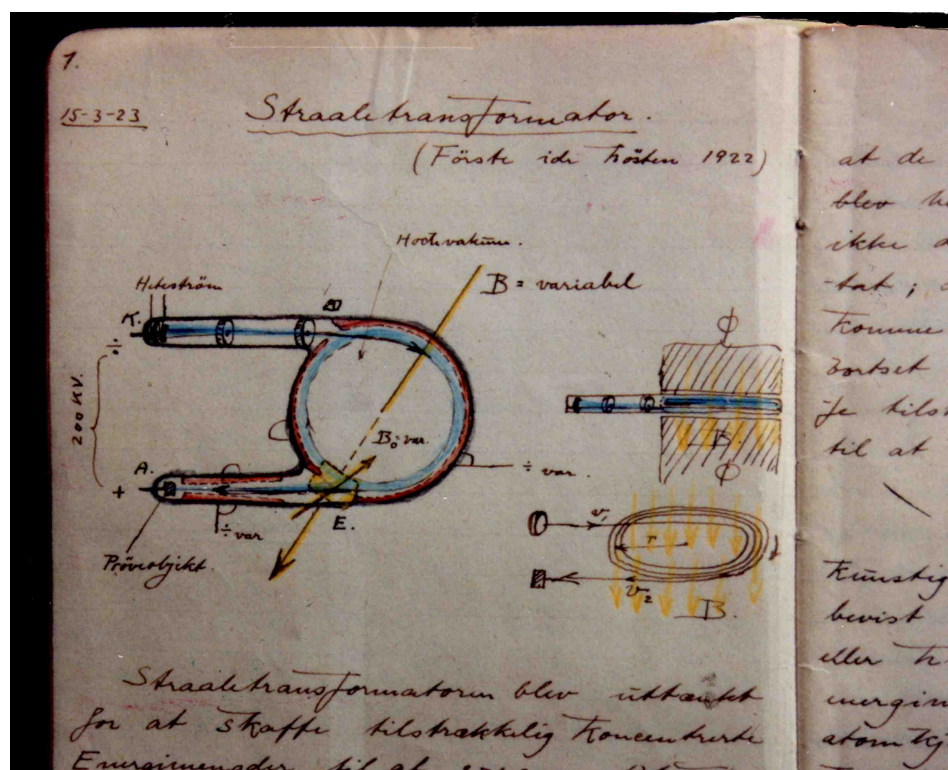 1.
15-3-23
Straaletransformator.
(Förste ide hösten 1922)
Hochvakuum.
B = variabel
Heteström
K.
÷
200 KV.
B₀ = var.
÷ var.
A.
+
÷ var
E.
Pröveobjikt.
ϕ
B.
ϕ
v₁
r
v₂
B.
Straaletransformatoren blev uttænkt
for at skaffe tilstrækkelig koncentrerte
Energimengder til at
at de
blev
ikke
tat ;
komme
bortset
til at
kunstig
bevist
eller